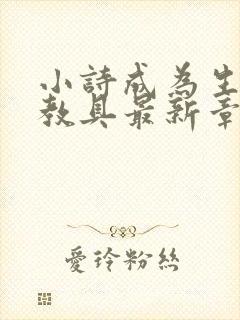 小詩成為生
教具最新章
愛玲粉絲